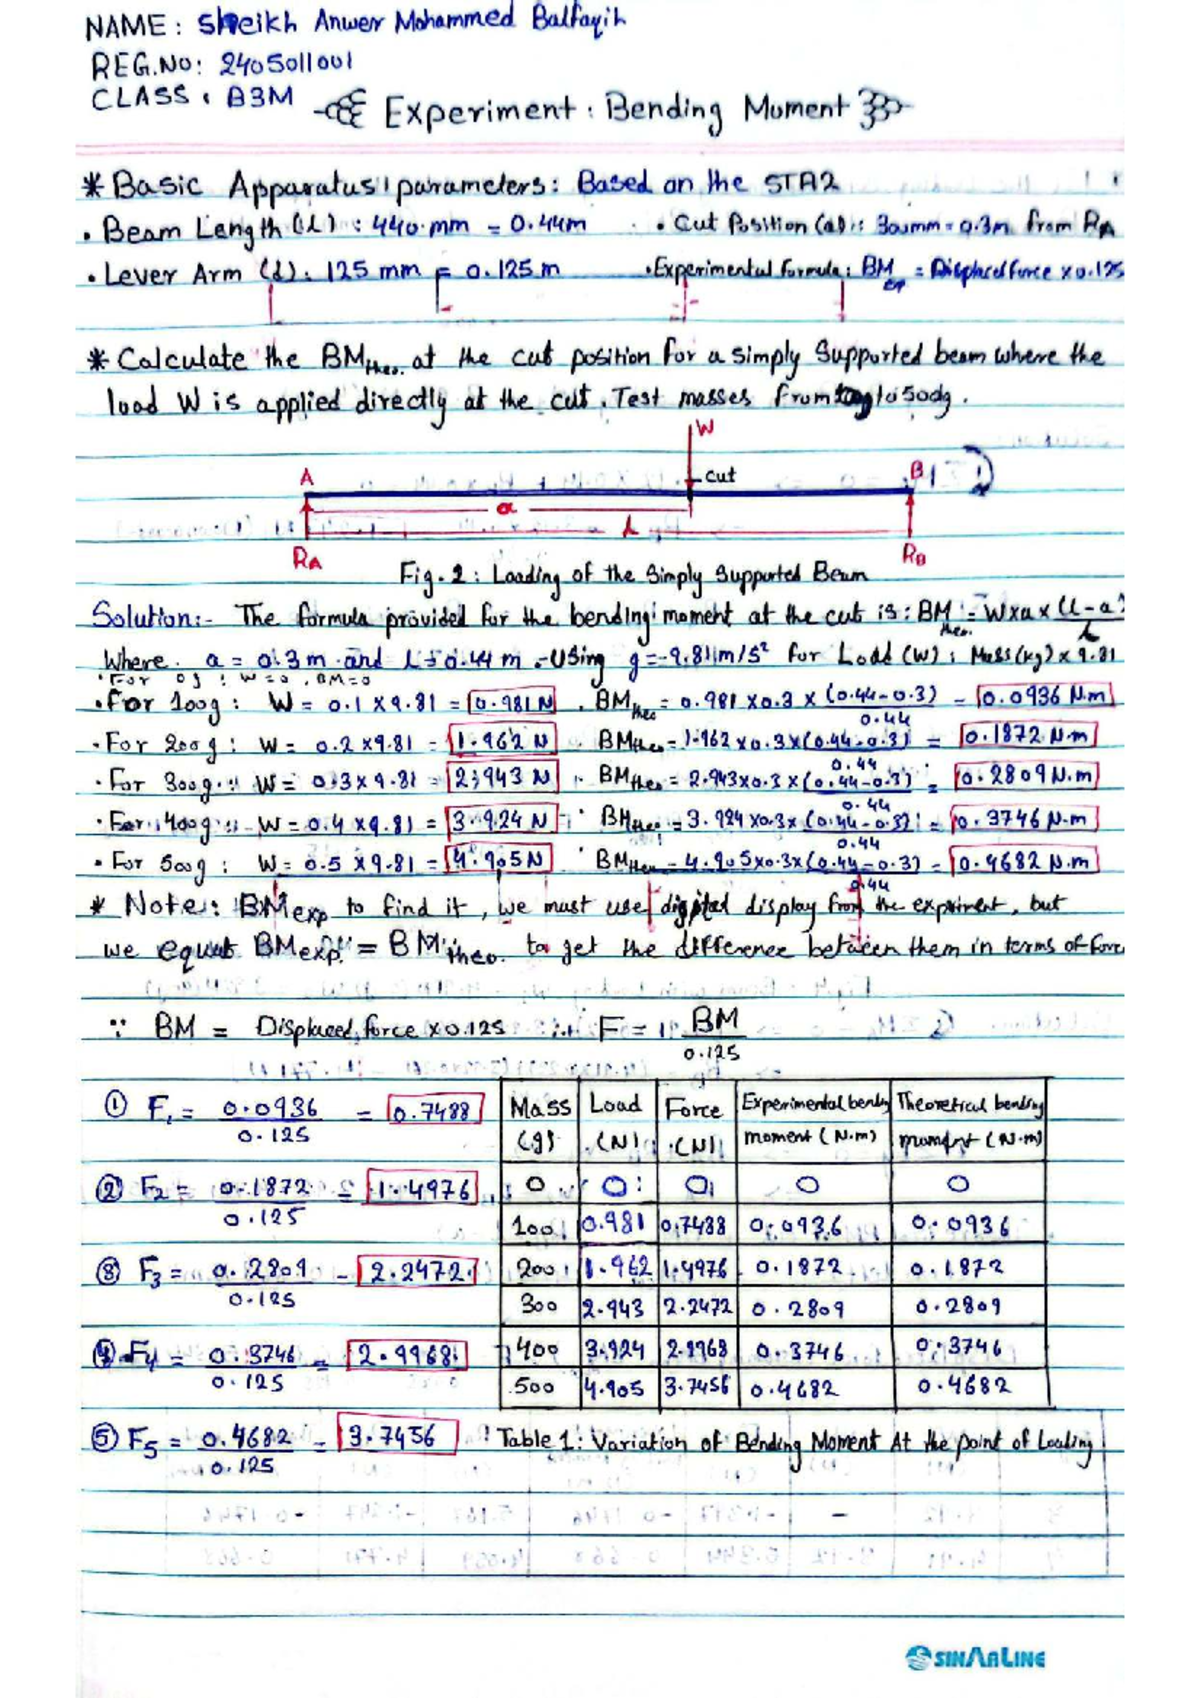 NAME : Sheikh Anwer Mohammed Balfaqih
REG.No: 2405011001
CLASS : B3M
Experiment : Bending Moment
* Basic Apparatus' parameters: Based on the STA2
• Beam Length (L) : 440 mm = 0.44m • Cut Position (a) : 300mm = 0.3m from RA
• Lever Arm (d) : 125 mm = 0.125 m • Experimental formula : BMexp = Displaced force x 0.125
* Calculate the BMtheo. at the cut position for a simply supported beam where the
load W is applied directly at the cut. Test masses from to 500g.
W
A cut B
a
L
RA RB
Fig. 2 : Loading of the Simply Supported Beam
Solution:- The formula provided for the bending moment at the cut is : BMtheo. = W x a x (L - a) / L
Where a = 0.3 m and L = 0.44 m - Using g = 9.81 m/s² for Load (W) : Mass (kg) x 9.81
• For 0g : W = 0 , BM = 0
• For 100g : W = 0.1 x 9.81 = 0.981 N . BMtheo = 0.981 x 0.3 x (0.44-0.3) / 0.44 = 0.0936 N.m
• For 200g : W = 0.2 x 9.81 = 1.962 N . BMtheo = 1.962 x 0.3 x (0.44-0.3) / 0.44 = 0.1872 N.m
• For 300g : W = 0.3 x 9.81 = 2.943 N . BMtheo = 2.943 x 0.3 x (0.44-0.3) / 0.44 = 0.2809 N.m
• For 400g : W = 0.4 x 9.81 = 3.924 N . BMtheo = 3.924 x 0.3 x (0.44-0.3) / 0.44 = 0.3746 N.m
• For 500g : W = 0.5 x 9.81 = 4.905 N . BMtheo = 4.905 x 0.3 x (0.44-0.3) / 0.44 = 0.4682 N.m
* Note : BMexp to find it, we must use digital display from the expriment, but
we equat BMexp. = BMtheo. to get the difference between them in terms of force
∵ BM = Displaced force x 0.125 ∴ F = BM / 0.125
① F₁ = 0.0936 / 0.125 = 0.7488
② F₂ = 0.1872 / 0.125 = 1.4976
③ F₃ = 0.2809 / 0.125 = 2.2472
④ F₄ = 0.3746 / 0.125 = 2.9968
⑤ F₅ = 0.4682 / 0.125 = 3.7456
Mass (g) Load (N) Force (N) Experimental bending moment (N.m) Theoretical bending moment (N.m)
0 0 0 0 0
100 0.981 0.7488 0.0936 0.0936
200 1.962 1.4976 0.1872 0.1872
300 2.943 2.2472 0.2809 0.2809
400 3.924 2.9968 0.3746 0.3746
500 4.905 3.7456 0.4682 0.4682
Table 1 : Variation of Bending Moment At the point of Loading
SINARLINE